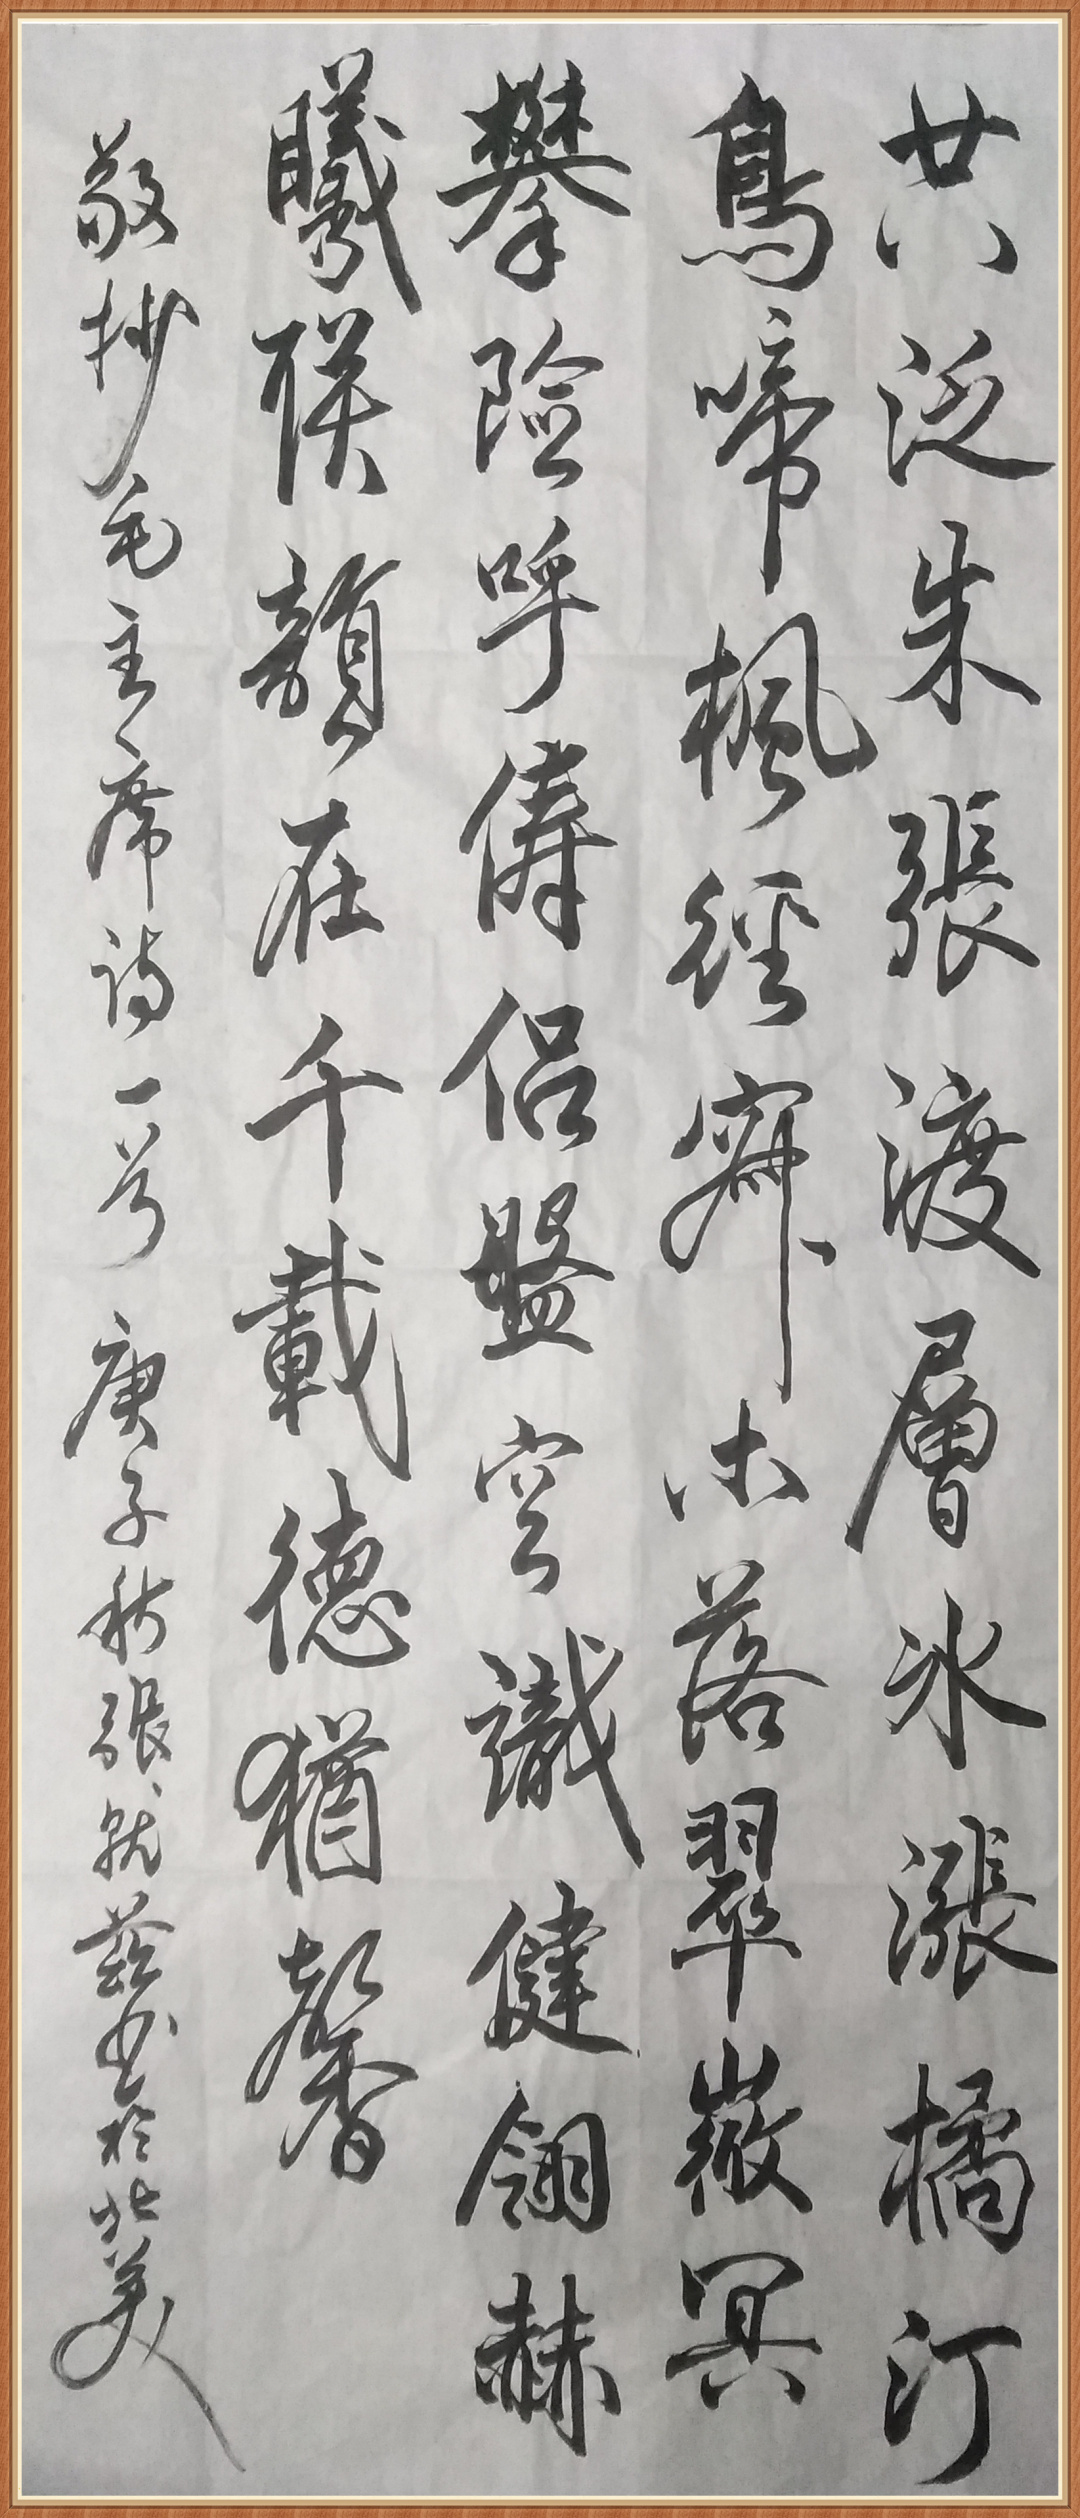 共泛朱張渡層冰漲橘汀
鳥啼楓徑寂木落翠嶶冥
攀險呼儔侶盤空識健翎赫
曦聯韻在千載德猶馨
敬抄毛主席诗一首 庚子秋張就兹书於北美